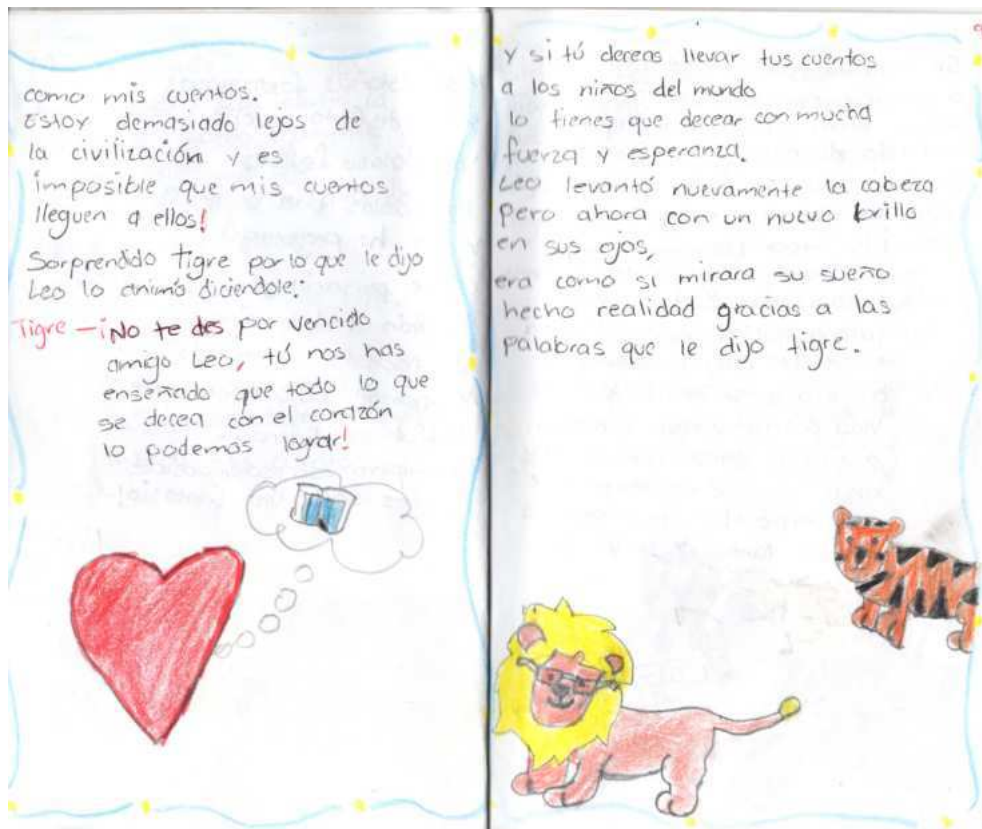 como mis cuentos.
Estoy demasiado lejos de
la civilización y es
imposible que mis cuentos
lleguen a ellos!
Sorprendido tigre por lo que le dijo
Leo lo animó diciendole:
Tigre - ¡No te des por vencido
amigo Leo, tú nos has
enseñado que todo lo que
se decea con el corazón
lo podemos lograr!
y si tú deceas llevar tus cuentos
a los niños del mundo
lo tienes que decear con mucha
fuerza y esperanza.
Leo levantó nuevamente la cabeza
pero ahora con un nuevo brillo
en sus ojos,
era como si mirara su sueño
hecho realidad gracias a las
palabras que le dijo tigre.